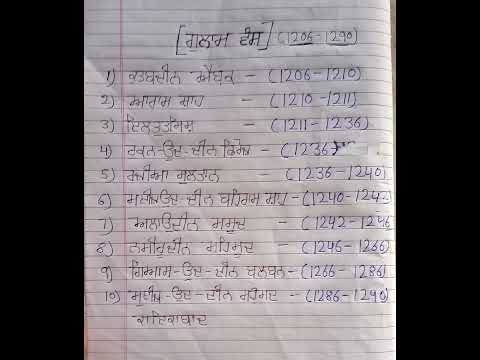 [ਗੁਲਾਮ ਵੰਸ਼] (1206-1290)
1) ਕੁਤਬਦੀਨ ਐਬਕ - (1206-1210)
2) ਆਰਾਮ ਸ਼ਾਹ - (1210-1211)
3) ਇਲਤੁਤਮਿਸ਼ - (1211-1236)
4) ਰੁਕਨ-ਉਦ-ਦੀਨ ਫਿਰੋਜ਼ - (1236)
5) ਰਜ਼ੀਆ ਸੁਲਤਾਨ - (1236-1240)
6) ਮੁਈਜ਼ਉਦ-ਦੀਨ ਬਹਿਰਾਮ ਸ਼ਾਹ - (1240-1242
7) ਅਲਾਉਦੀਨ ਮਸੂਦ - (1242-1246
8) ਨਸੀਰੁਦੀਨ ਮਹਿਮੂਦ - (1246-1266)
9) ਗਿਆਸ-ਉਦ-ਦੀਨ ਬਲਬਨ - (1266-1286)
10) ਮੁਈਜ਼-ਉਦ-ਦੀਨ - (1286-1290)